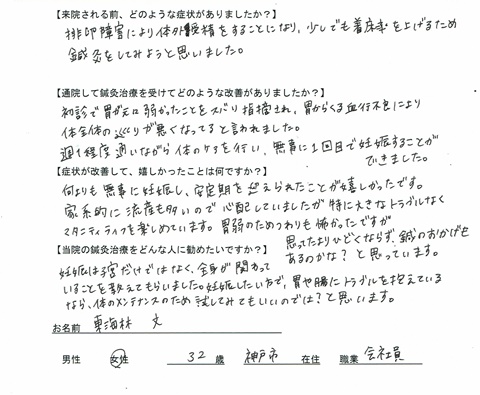 【来院される前、どのような症状がありましたか？】
排卵障害により体外受精をすることになり、少しでも着床率を上げるため
鍼灸をしてみようと思いました。
【通院して鍼灸治療を受けてどのような改善がありましたか？】
初診で胃が元々弱かったことをズバリ指摘され、胃からくる血行不良により
体全体の巡りが悪くなってると言われました。
週1程度通いながら体のケアを行い、無事に1回目で妊娠することが
できました。
【症状が改善して、嬉しかったことは何ですか？】
何よりも無事に妊娠し、安定期を迎えられたことが嬉しかったです。
家系的に流産も多いので心配していましたが特に大きなトラブルなく
マタニティライフを楽しめています。胃弱のためつわりも怖かったですが
思ってたよりひどくならず、鍼のおかげも
あるのかな？と思っています。
【当院の鍼灸治療をどんな人に勧めたいですか？】
妊娠は子宮だけではなく、全身が関わって
いることを教えてもらいました。妊娠したい方で、胃や腸にトラブルを抱えている
なら、体のメンテナンスのため試してみてもいいのでは？と思います。
お名前 東海林 文
男性 女性 32 歳 神戸市 在住 職業 会社員